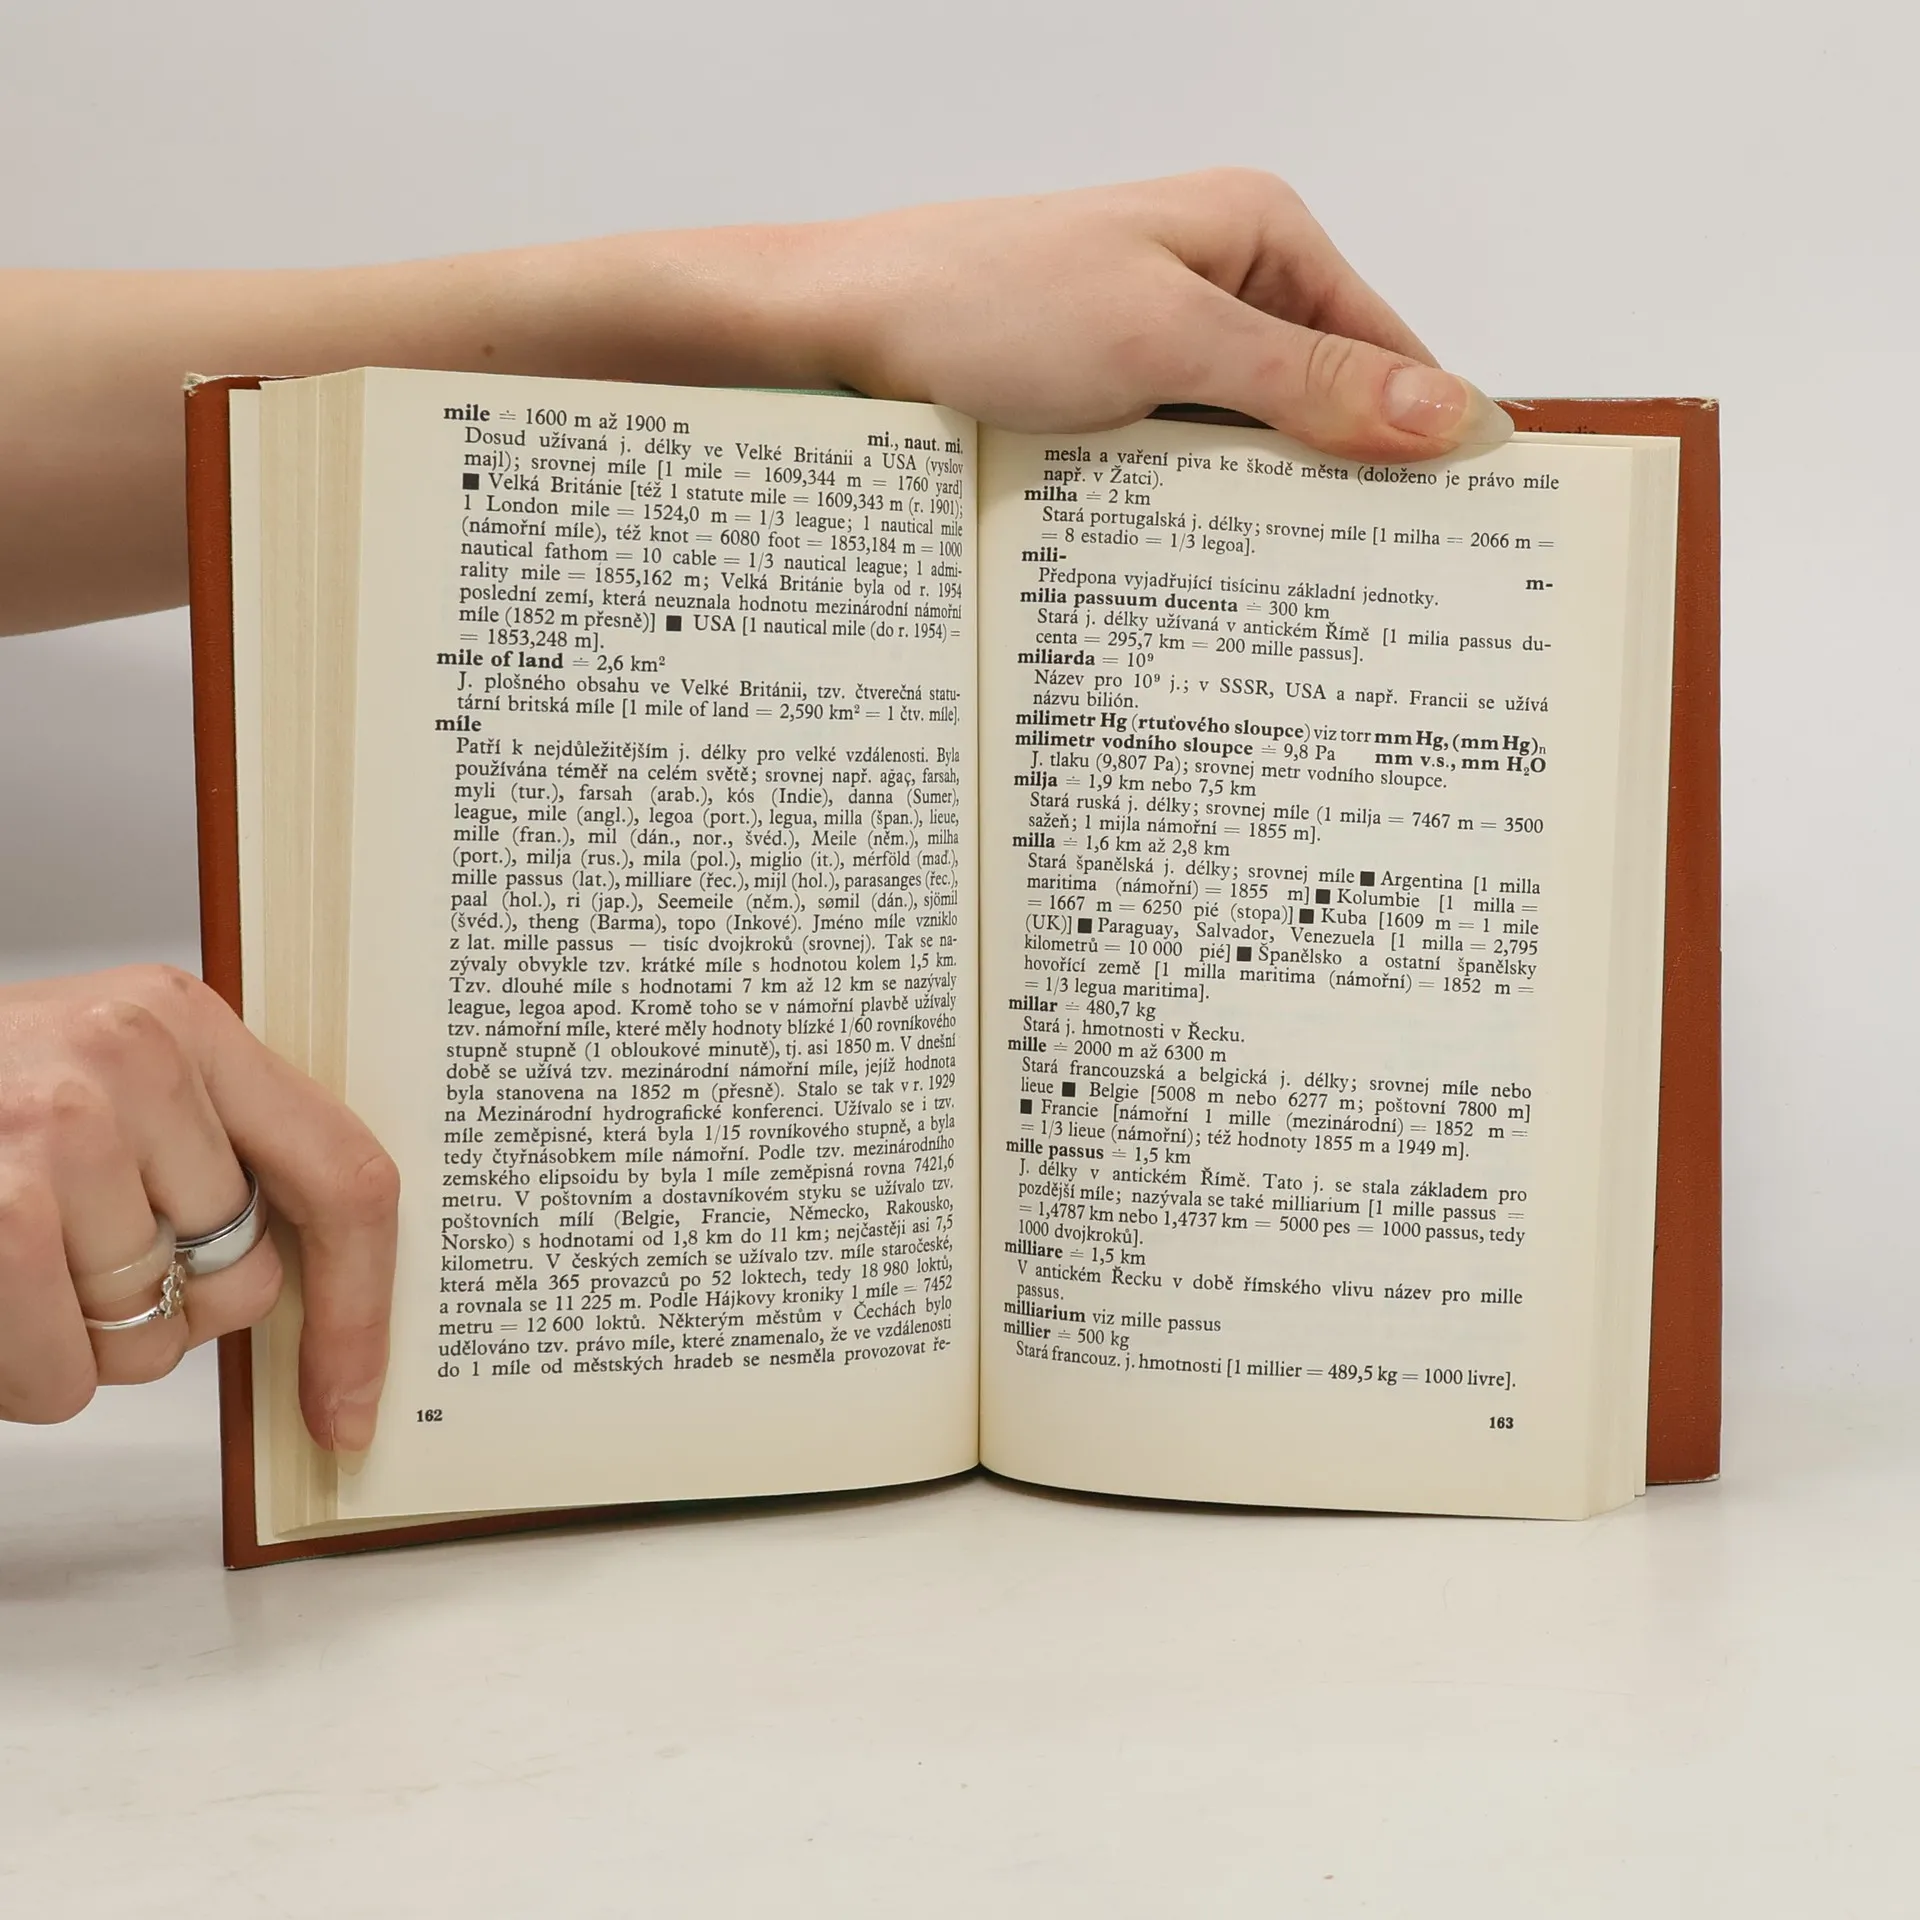 mile ≐ 1600 m až 1900 m
mi., naut. mi.
Dosud užívaná j. délky ve Velké Británii a USA (vyslov
majl); srovnej míle [1 mile = 1609,344 m = 1760 yard]
■ Velká Británie [též 1 statute mile = 1609,343 m (r. 1901);
1 London mile = 1524,0 m = 1/3 league; 1 nautical mile
(námořní míle), též knot = 6080 foot = 1853,184 m = 1000
nautical fathom = 10 cable = 1/3 nautical league; 1 admi-
rality mile = 1855,162 m; Velká Británie byla od r. 1954
poslední zemí, která neuznala hodnotu mezinárodní námořní
míle (1852 m přesně)] ■ USA [1 nautical mile (do r. 1954) =
= 1853,248 m].
mile of land ≐ 2,6 km²
J. plošného obsahu ve Velké Británii, tzv. čtverečná statu-
tární britská míle [1 mile of land = 2,590 km² = 1 čtv. míle].
míle
Patří k nejdůležitějším j. délky pro velké vzdálenosti. Byla
používána téměř na celém světě; srovnej např. ağaç, farsah,
myli (tur.), farsah (arab.), kós (Indie), danna (Sumer),
league, mile (angl.), legoa (port.), legua, milla (špan.), lieue,
mille (fran.), mil (dán., nor., švéd.), Meile (něm.), milha
(port.), milja (rus.), mila (pol.), miglio (it.), mérföld (maď.),
mille passus (lat.), milliare (řec.), mijl (hol.), parasanges (řec.),
paal (hol.), ri (jap.), Seemeile (něm.), sømil (dán.), sjömil
(švéd.), theng (Barma), topo (Inkové). Jméno míle vzniklo
z lat. mille passus — tisíc dvojkroků (srovnej). Tak se na-
zývaly obvykle tzv. krátké míle s hodnotou kolem 1,5 km.
Tzv. dlouhé míle s hodnotami 7 km až 12 km se nazývaly
league, legoa apod. Kromě toho se v námořní plavbě užívaly
tzv. námořní míle, které měly hodnoty blízké 1/60 rovníkového
stupně stupně (1 obloukové minutě), tj. asi 1850 m. V dnešní
době se užívá tzv. mezinárodní námořní míle, jejíž hodnota
byla stanovena na 1852 m (přesně). Stalo se tak v r. 1929
na Mezinárodní hydrografické konferenci. Užívalo se i tzv.
míle zeměpisné, která byla 1/15 rovníkového stupně, a byla
tedy čtyřnásobkem míle námořní. Podle tzv. mezinárodního
zemského elipsoidu by byla 1 míle zeměpisná rovna 7421,6
metru. V poštovním a dostavníkovém styku se užívalo tzv.
poštovních mílí (Belgie, Francie, Německo, Rakousko,
Norsko) s hodnotami od 1,8 km do 11 km; nejčastěji asi 7,5
kilometru. V českých zemích se užívalo tzv. míle staročeské,
která měla 365 provazců po 52 loktech, tedy 18 980 loktů,
a rovnala se 11 225 m. Podle Hájkovy kroniky 1 míle = 7452
metru = 12 600 loktů. Některým městům v Čechách bylo
udělováno tzv. právo míle, které znamenalo, že ve vzdálenosti
do 1 míle od městských hradeb se nesměla provozovat ře-
162
mesla a vaření piva ke škodě města (doloženo je právo míle
např. v Žatci).
milha ≐ 2 km
Stará portugalská j. délky; srovnej míle [1 milha = 2066 m =
= 8 estadio = 1/3 legoa].
mili-
m-
Předpona vyjadřující tisícinu základní jednotky.
milia passuum ducenta ≐ 300 km
Stará j. délky užívaná v antickém Římě [1 milia passus du-
centa = 295,7 km = 200 mille passus].
miliarda = 10⁹
Název pro 10⁹ j.; v SSSR, USA a např. Francii se užívá
názvu bilión.
milimetr Hg (rtuťového sloupce) viz torr mm Hg, (mm Hg)ₙ
milimetr vodního sloupce ≐ 9,8 Pa mm v.s., mm H₂O
J. tlaku (9,807 Pa); srovnej metr vodního sloupce.
milja ≐ 1,9 km nebo 7,5 km
Stará ruská j. délky; srovnej míle (1 milja = 7467 m = 3500
sažeň; 1 mijla námořní = 1855 m].
milla ≐ 1,6 km až 2,8 km
Stará španělská j. délky; srovnej míle ■ Argentina [1 milla
maritima (námořní) = 1855 m] ■ Kolumbie [1 milla =
= 1667 m = 6250 pié (stopa)] ■ Kuba [1609 m = 1 mile
(UK)] ■ Paraguay, Salvador, Venezuela [1 milla = 2,795
kilometrů = 10 000 pié] ■ Španělsko a ostatní španělsky
hovořící země [1 milla maritima (námořní) = 1852 m =
= 1/3 legua maritima].
millar ≐ 480,7 kg
Stará j. hmotnosti v Řecku.
mille ≐ 2000 m až 6300 m
Stará francouzská a belgická j. délky; srovnej míle nebo
lieue ■ Belgie [5008 m nebo 6277 m; poštovní 7800 m]
■ Francie [námořní 1 mille (mezinárodní) = 1852 m =
= 1/3 lieue (námořní); též hodnoty 1855 m a 1949 m].
mille passus ≐ 1,5 km
J. délky v antickém Římě. Tato j. se stala základem pro
pozdější míle; nazývala se také milliarium [1 mille passus =
= 1,4787 km nebo 1,4737 km = 5000 pes = 1000 passus, tedy
1000 dvojkroků].
milliare ≐ 1,5 km
V antickém Řecku v době římského vlivu název pro mille
passus.
milliarium viz mille passus
millier ≐ 500 kg
Stará francouz. j. hmotnosti [1 millier = 489,5 kg = 1000 livre].
163